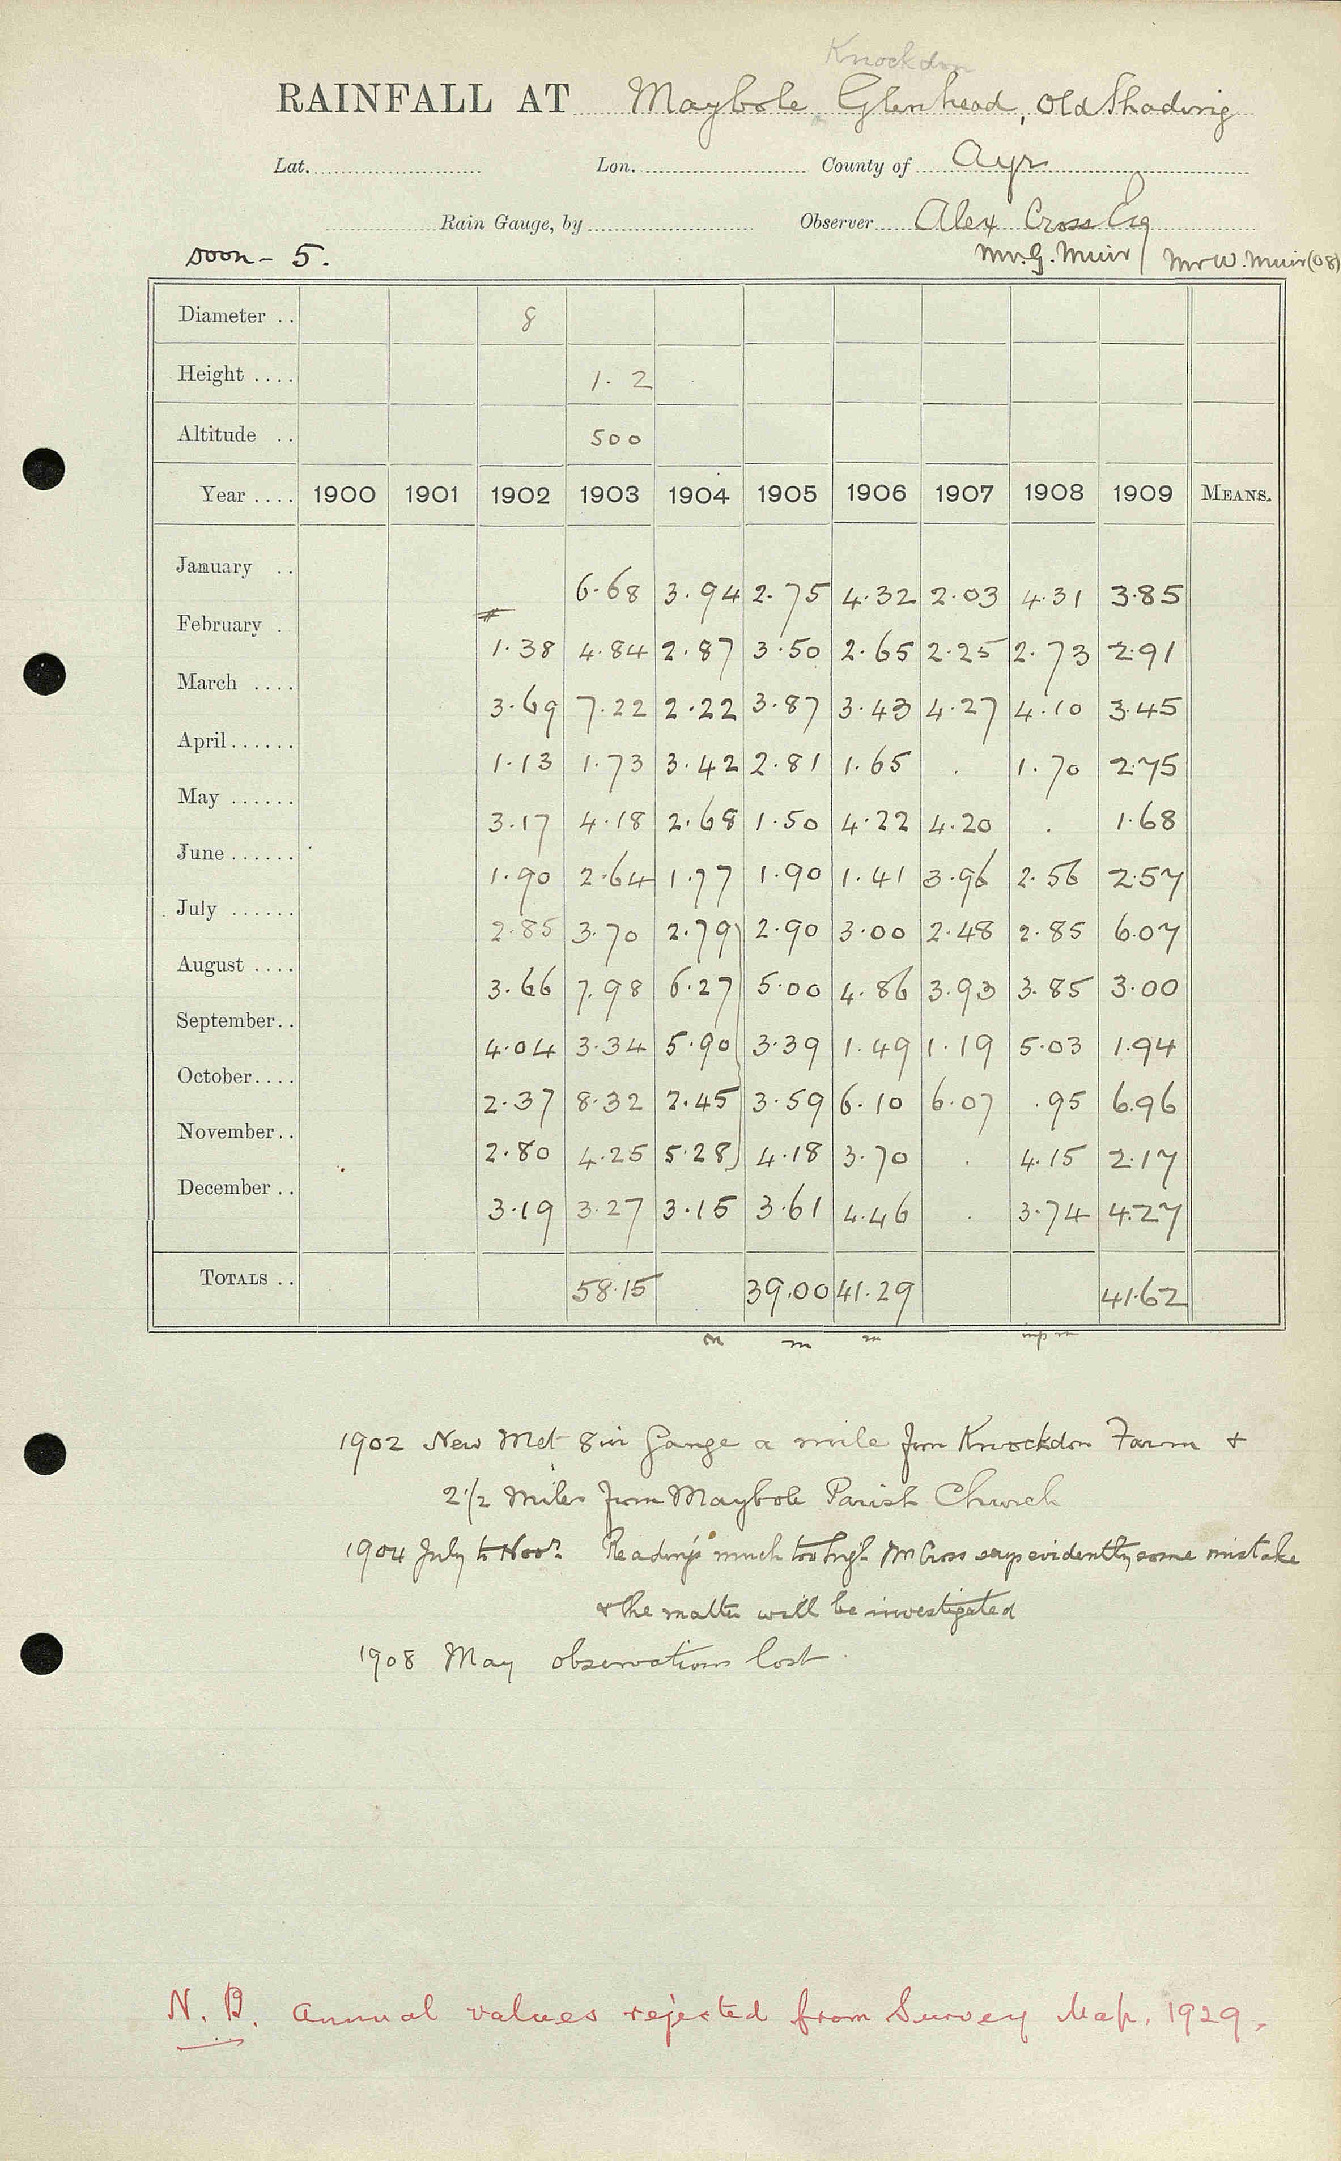 Knockdon
RAINFALL AT Maybole Glenhead, Old Shading
Lat. Lon. County of Ayr
Rain Gauge, by Observer Alex Cross Esq
soon - 5. Mr. G. Muir / Mr W. Muir (08)
Diameter .. 8
Height .... 1. 2
Altitude .. 500
Year .... 1900 1901 1902 1903 1904 1905 1906 1907 1908 1909 MEANS.
January .. 6.68 3.94 2.75 4.32 2.03 4.31 3.85
February . # 1.38 4.84 2.87 3.50 2.65 2.25 2.73 2.91
March .... 3.69 7.22 2.22 3.87 3.43 4.27 4.10 3.45
April...... 1.13 1.73 3.42 2.81 1.65 . 1.70 2.75
May ...... 3.17 4.18 2.68 1.50 4.22 4.20 . 1.68
June ...... 1.90 2.64 1.77 1.90 1.41 3.96 2.56 2.57
July ...... 2.85 3.70 2.79 2.90 3.00 2.48 2.85 6.07
August .... 3.66 7.98 6.27 5.00 4.86 3.93 3.85 3.00
September.. 4.04 3.34 5.90 3.39 1.49 1.19 5.03 1.94
October.... 2.37 8.32 2.45 3.59 6.10 6.07 .95 6.96
November.. 2.80 4.25 5.28 4.18 3.70 . 4.15 2.17
December .. 3.19 3.27 3.15 3.61 4.46 . 3.74 4.27
TOTALS .. 58.15 39.00 41.29 41.62
m m inp m
1902 New Met 8 in Gauge a mile from Knockdon Farm &
2 1/2 miles from Maybole Parish Church
1904 July to Novr. Readings much too high Mr Cross says evidently some mistake
& the matter will be investigated
1908 May observations lost.
N. B. Annual values rejected from Survey Map, 1929.